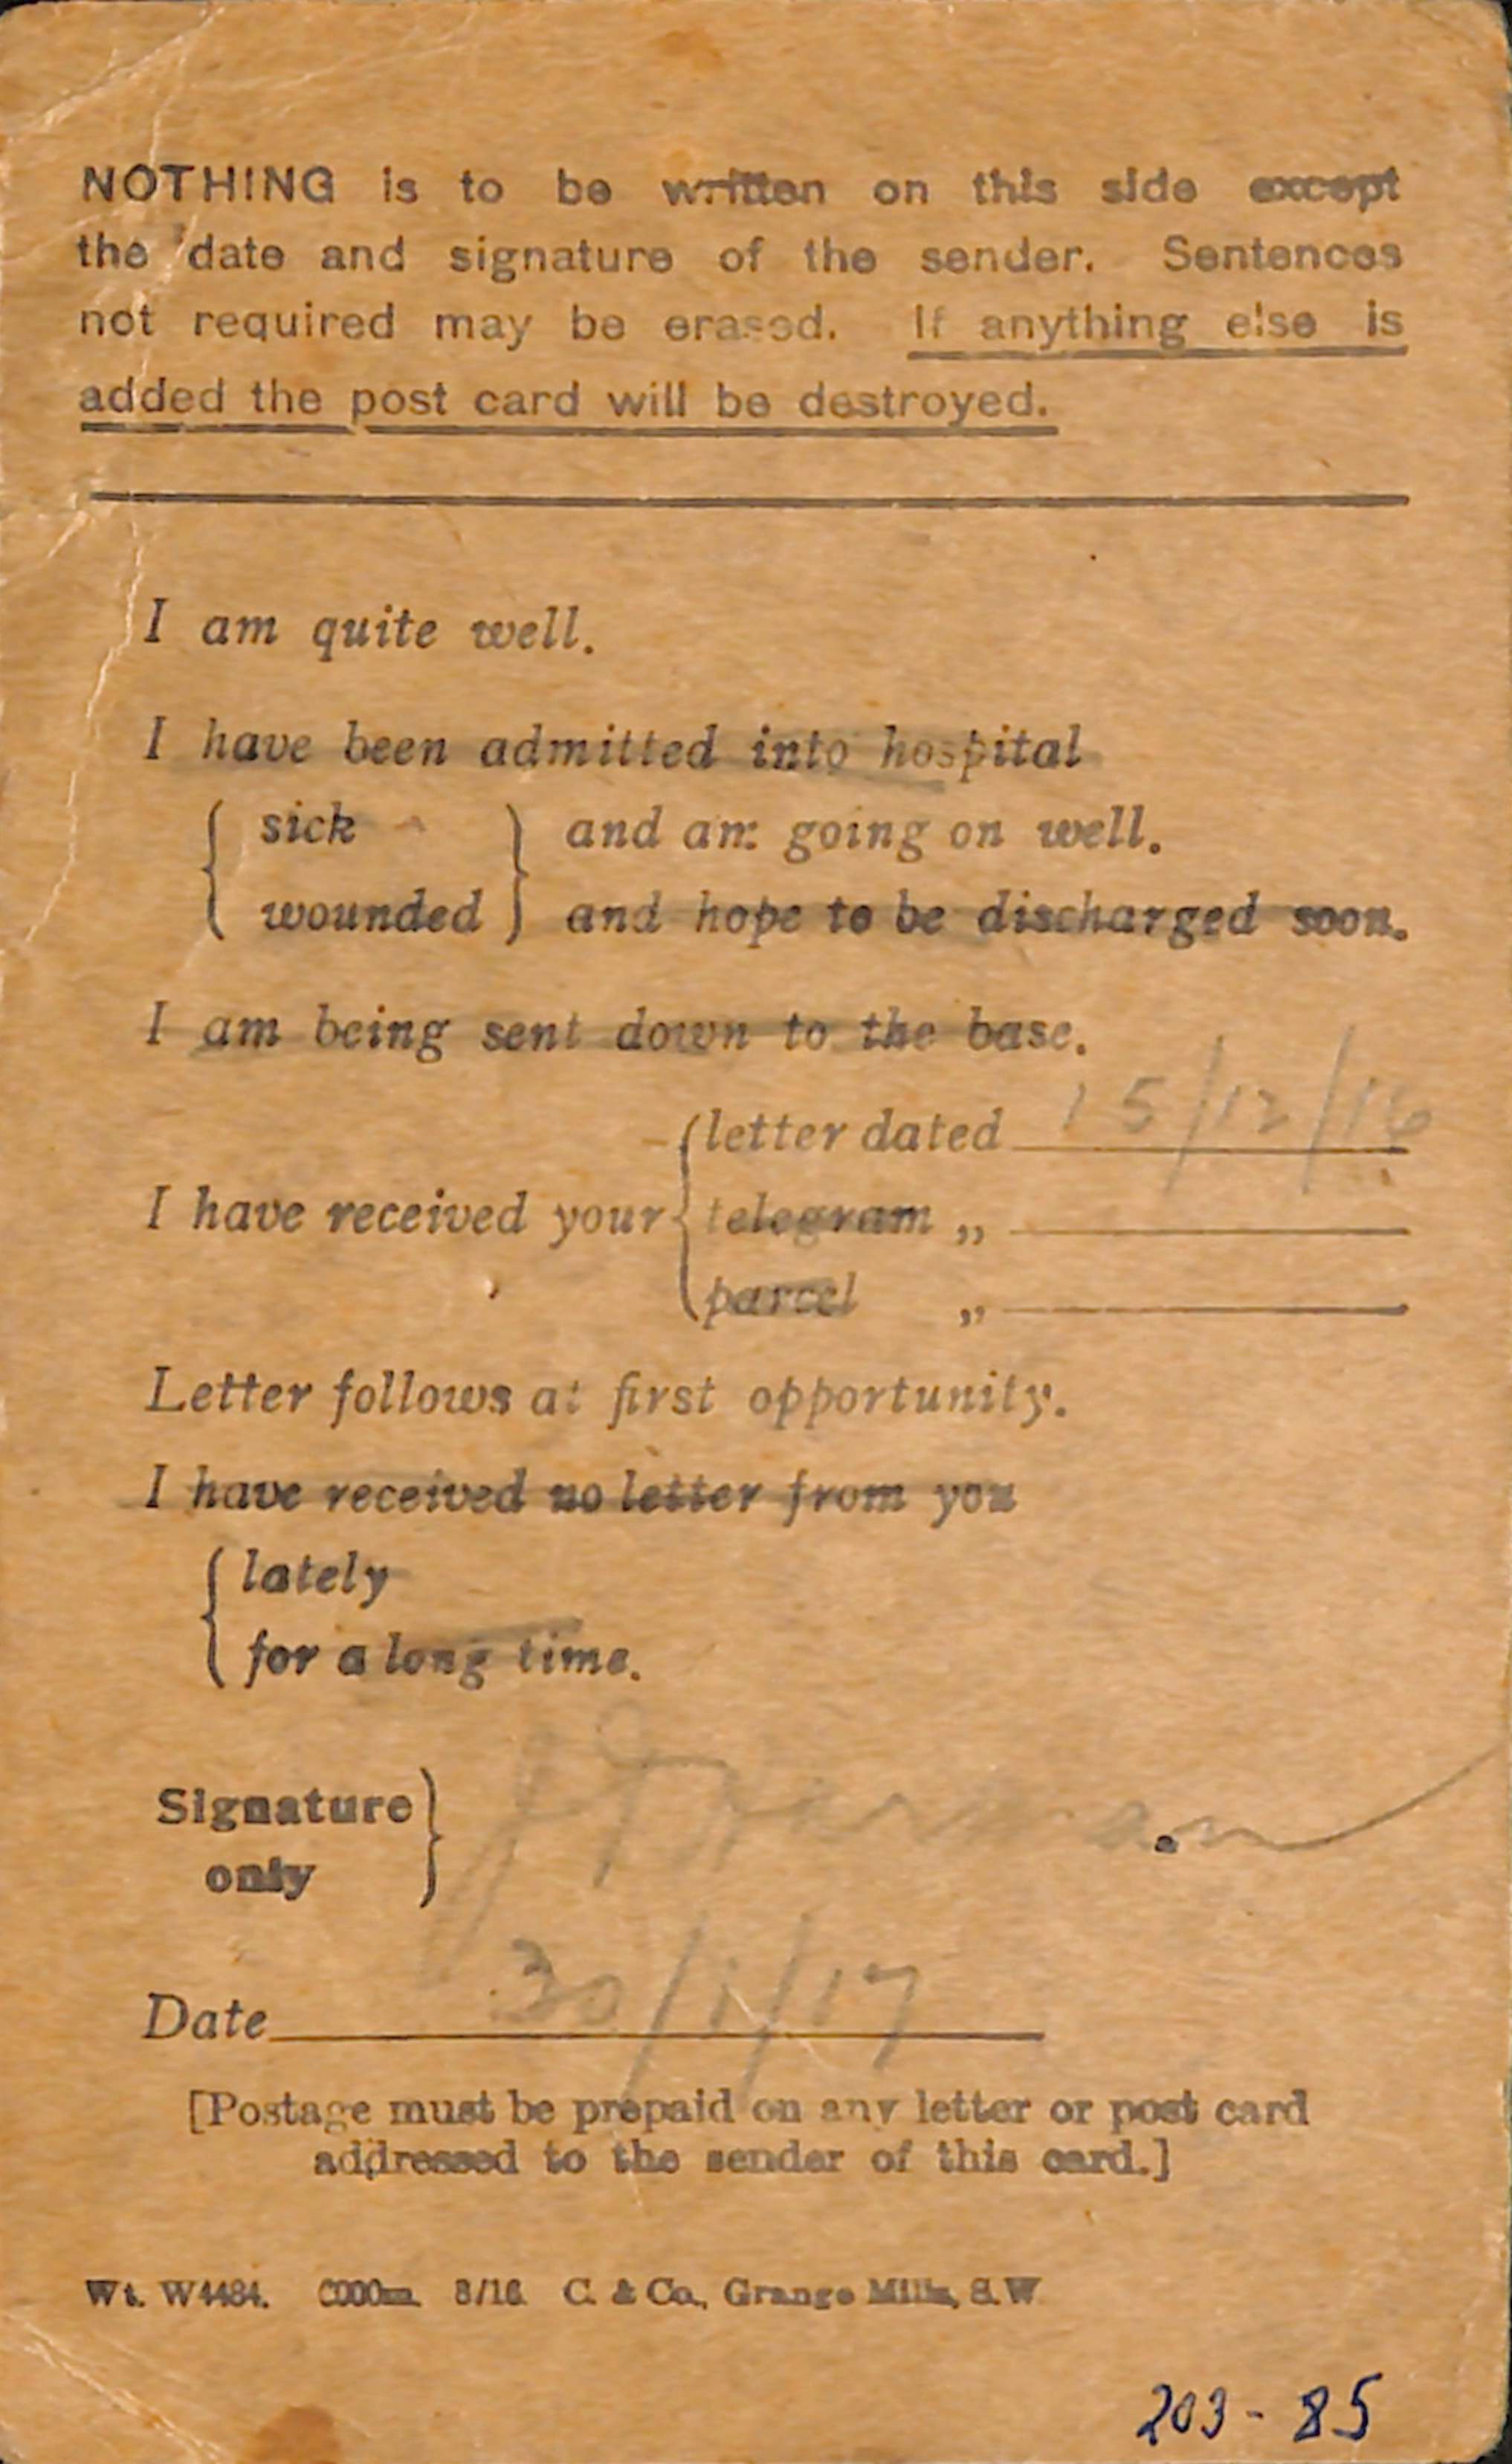 NOTHING is to be written on this side except
the date and signature of the sender. Sentences
not required may be erased. If anything else is
added the post card will be destroyed.
I am quite well.
I have been admitted into hospital
sick and am going on well.
wounded and hope to be discharged soon.
I am being sent down to the base.
letter dated 15/12/16
I have received your telegram „
parcel „
Letter follows at first opportunity.
I have received no letter from you
lately
for a long time.
Signature
only
Date 30/1/17
[Postage must be prepaid on any letter or post card
addressed to the sender of this card.]
Wt. W4484. 8/16 C. & Co., Grange Mills, S.W
203-85